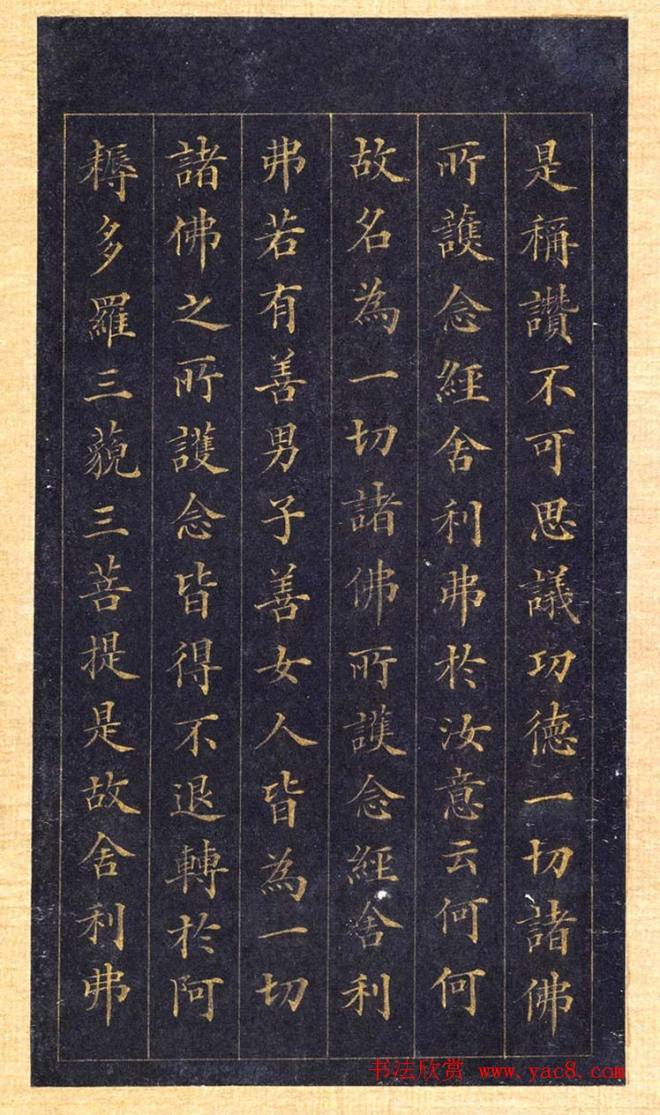 是稱讚不可思議功德一切諸佛
所護念經舍利弗於汝意云何何
故名為一切諸佛所護念經舍利
弗若有善男子善女人皆為一切
諸佛之所護念皆得不退轉於阿
耨多羅三藐三菩提是故舍利弗
书法欣赏 www.yac8.com